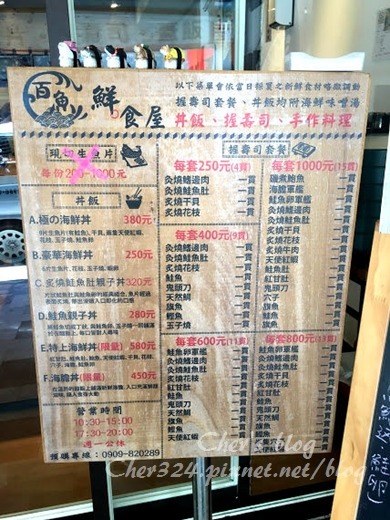 百魚 鮮の食屋
以下菜單會依當日採買之新鮮食材略微調動
握壽司套餐、丼飯均附海鮮味噌湯
丼飯、握壽司、手作料理
現切生魚片
每份200-1000元
丼飯
A.極の海鮮丼 380元
B.豪華海鮮丼 250元
C.炙燒鮭魚肚親子丼320元
D.鮭魚親子丼 280元
E.特上海鮮丼(限量) 580元
F.海膽丼(限量) 450元
營業時間
10:30-15:00
17:30-20:00
週一公休
預購專線:0909-820289
握壽司套餐
每套250元(4貫)
炙燒鰭邊肉 一貫
炙燒鮭魚肚 一貫
炙燒干貝 一貫
炙燒花枝 一貫
每套400元(9貫)
炙燒鰭邊肉 一貫
炙燒鮭魚肚 一貫
炙燒花枝 一貫
鮭魚 一貫
鬼頭刀 一貫
天然鯛 一貫
旗魚 一貫
鰹魚 一貫
玉子燒 一貫
每套600元(11貫)
鮭魚卵軍艦 一貫
炙燒鰭邊肉 一貫
炙燒鮭魚肚 一貫
炙燒干貝 一貫
炙燒花枝 一貫
紅甘肚 一貫
鮭魚 一貫
鬼頭刀 一貫
天然鯛 一貫
旗魚 一貫
天使紅蝦 一貫
每套1000元(15貫)
磯煮鮑魚 一貫
海膽軍艦 一貫
鮭魚卵軍艦 一貫
炙燒鰭邊肉 一貫
炙燒鮭魚肚 一貫
炙燒干貝 一貫
炙燒花枝 一貫
炙燒牛肉 一貫
天使紅蝦 一貫
紅甘肚 一貫
鮭魚 一貫
鬼頭刀 一貫
穴子 一貫
旗魚 一貫
每套800元(13貫)
鮭魚卵軍艦 一貫
炙燒鰭邊肉 一貫
炙燒鮭魚肚 一貫
炙燒干貝 一貫
炙燒花枝 一貫
紅甘肚 一貫
鮭魚 一貫
鬼頭刀 一貫
天然鯛 一貫
旗魚 一貫
穴子 一貫
天使紅蝦 一貫
Cher's blog
Cher324.pixnet.net/blog